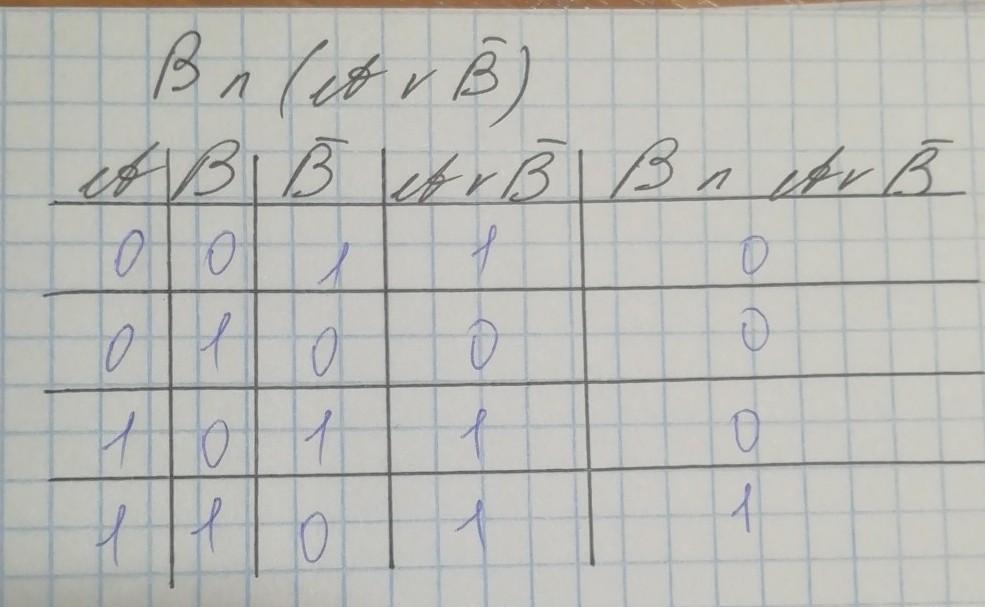 B ∧ (A ∨ B̄)
A B B̄ A ∨ B̄ B ∧ A ∨ B̄
0 0 1 1 0
0 1 0 0 0
1 0 1 1 0
1 1 0 1 1